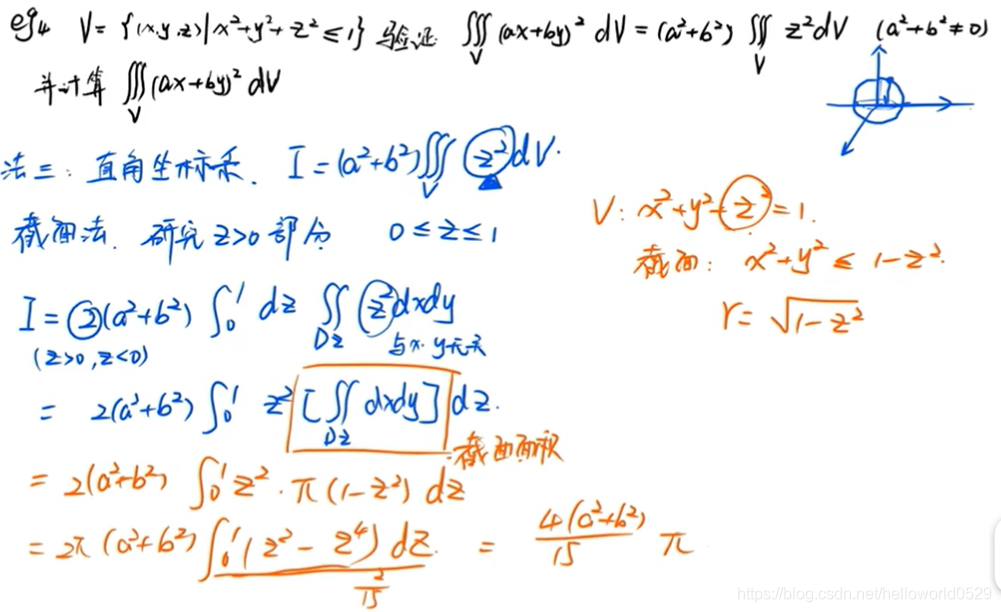 eg4 V={(x,y,z)|x²+y²+z²≤1} 验证 ∭_V (ax+by)² dV = (a²+b²) ∭_V z²dV (a²+b²≠0)
并计算 ∭_V (ax+by)² dV
法三: 直角坐标系. I=(a²+b²)∭_V z² dV.
截面法. 研究 z>0 部分 0≤z≤1
I = 2(a²+b²) ∫₀¹ dz ∬_Dz z² dxdy
(z>0, z<0) 与x.y无关
= 2(a²+b²) ∫₀¹ z² [∬_Dz dxdy] dz.
截面面积
= 2(a²+b²) ∫₀¹ z²·π(1-z²) dz
= 2π(a²+b²) ∫₀¹ (z²-z⁴) dz. = 4(a²+b²)/15 π
2/15
V: x²+y²+z²=1.
截面: x²+y²≤1-z².
r=√(1-z²)
https://blog.csdn.net/helloworld0529